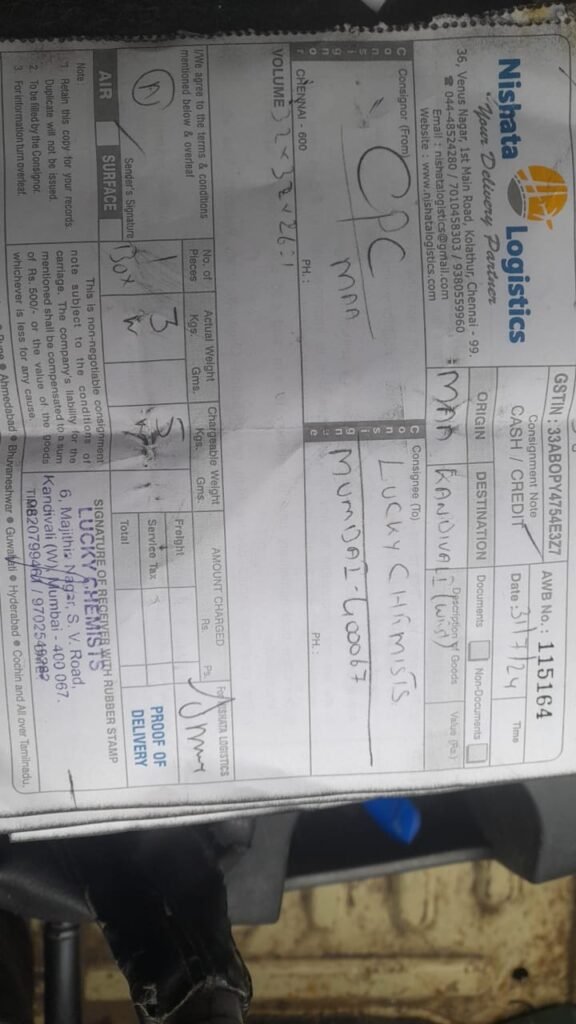 Nishata Logistics
Your Delivery Partner
36, Venus Nagar, 1st Main Road, Kolathur, Chennai - 99.
☎ 044-48524280 / 7010458303 / 9380559960
Email : nishatalogistics@gmail.com
Website : www.nishatalogistics.com
GSTIN : 33ABOPY4754E3Z7
Consignment Note
CASH / CREDIT
AWB No. : 115164
Date : 31/7/24
Time
ORIGIN
MAA
DESTINATION
KANDIVALI (West)
Documents
Non-Documents
Description of Goods
Value (Rs.)
Consignor
Consignor (From)
CPC
MAA
CHENNAI - 600
PH.:
Consignee
Consignee (To)
LUCKY CHEMISTS
MUMBAI-400067
PH.:
VOLUME 32×32×26=1
I/We agree to the terms & conditions
mentioned below & overleaf
Sender's Signature
AIR
SURFACE
No. of
Pieces
1
Box
Actual Weight
Kgs. Gms.
3
Chargeable Weight
Kgs. Gms.
5
AMOUNT CHARGED
Rs. Ps.
Freight
Service Tax
Total
For NISHATA LOGISTICS
PROOF OF
DELIVERY
Note
1. Retain this copy for your records.
Duplicate will not be issued.
2. To be filled by the Consignor.
3. For information turn overleaf.
This is non-negotiable consignment
note subject to the conditions of
carriage. The company's liability for the
mentioned shall be compensated to a sum
of Rs. 500/- or the value of the goods
whichever is less for any cause.
SIGNATURE OF RECEIVER WITH RUBBER STAMP
LUCKY CHEMISTS
6, Majithia Nagar, S. V. Road,
Kandivali (W), Mumbai - 400 067.
Pune ● Ahmedabad ● Bhuvaneshwar ● Guwahati ● Hyderabad ● Cochin and All over Tamilnadu.